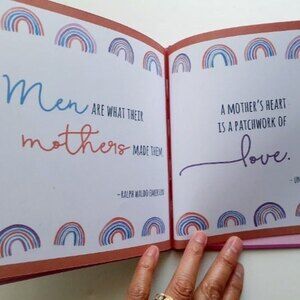 Men ARE WHAT THEIR
mothers MADE THEM.
-RALPH WALDO EMERSON
A MOTHER'S HEART
IS A PATCHWORK OF
love.